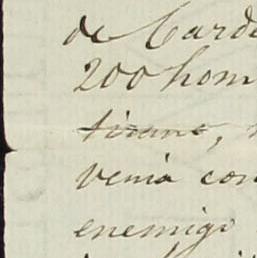 de Carde
200 hom
tirano,
venia con
enemigo